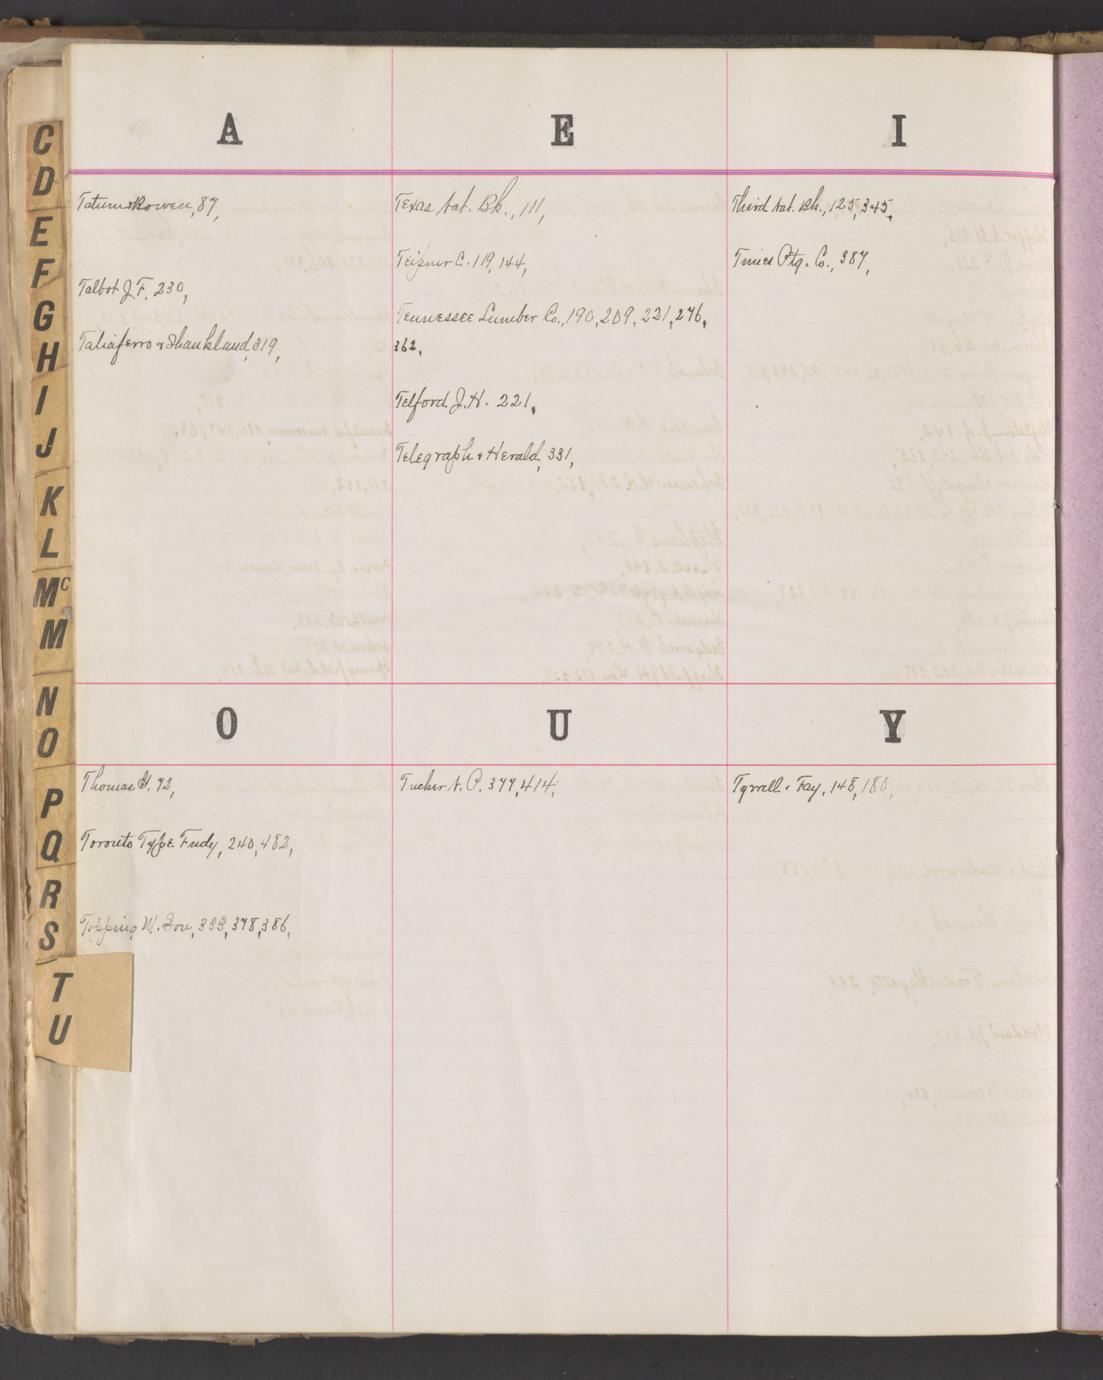 C
D
E
F
G
H
I
J
K
L
Mc
M
N
O
P
Q
R
S
T
U
A
Tatum & Bowen, 87,
Talbot J.F. 230,
Taliaferro & Shankland, 319,
E
Texas Nat. Bk., 111,
Teizner C. 119, 144,
Tennessee Lumber Co., 190, 209, 221, 276,
362,
Telford J.H. 221,
Telegraph & Herald, 331,
I
Third Nat. Bk., 125, 345,
Times Ptg. Co., 387,
O
Thomas G. 72,
Toronto Type Fndy, 240, 482,
Topping W. Son, 333, 378, 386,
U
Tucker N. P. 377, 414,
Y
Tyrrell & Fay, 148, 180,